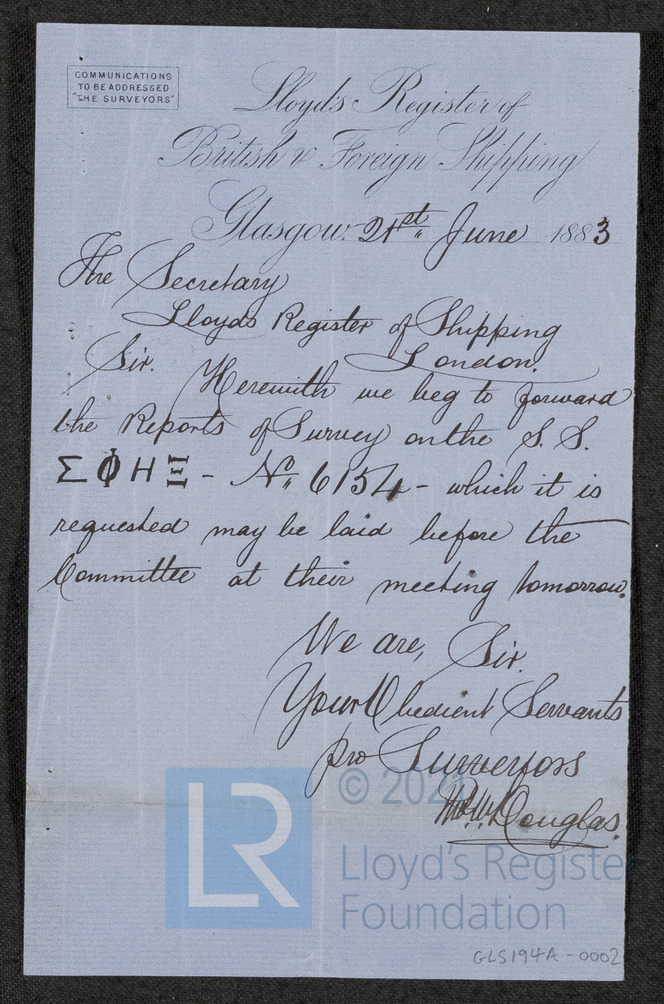 COMMUNICATIONS
TO BE ADDRESSED
"THE SURVEYORS"
Lloyd's Register of
British & Foreign Shipping
Glasgow. 21st June 1883
The Secretary
Lloyds Register of Shipping
London.
Sir.
Herewith we beg to forward
the Reports of Survey on the S.S.
ΣΦΗΞ - No. 6154 - which it is
requested may be laid before the
Committee at their meeting tomorrow.
We are, Sir.
Your Obedient Servants
pro Surveyors
Douglas.
© 202
LR
Lloyd's Registe
Foundation
GLS194A-0002